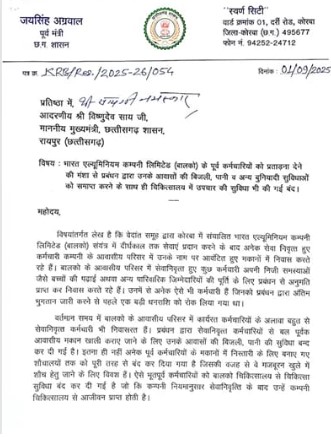 जयसिंह अग्रवाल
पूर्व मंत्री
छ.ग. शासन
"स्वर्ण सिटी"
वार्ड क्रमांक 01, दर्री रोड, कोरबा
जिला-कोरबा (छ.ग.) 495677
फोन नं. 94252-24712
पत्र क्र. JSRB/Res./2025-26/054
दिनांक : 01/09/2025
प्रतिष्ठा में,
आदरणीय श्री विष्णुदेव साय जी,
माननीय मुख्यमंत्री, छत्तीसगढ़ शासन,
रायपुर (छत्तीसगढ़)
विषय : भारत एल्यूमिनियम कम्पनी लिमिटेड (बालको) के पूर्व कर्मचारियों को प्रताड़ना देने
की मंशा से प्रबंधन द्वारा उनके आवासों की बिजली, पानी व अन्य बुनियादी सुविधाओं
को समाप्त करने के साथ ही चिकित्सालय में उपचार की सुविधा भी की गई बंद।
महोदय,
विषयांतर्गत लेख है कि वेदांत समूह द्वारा कोरबा में संचालित भारत एल्यूमिनियम कम्पनी
लिमिटेड (बालको) संयंत्र में दीर्घकाल तक सेवाएं प्रदान करने के बाद अनेक सेवा निवृत्त हुए
कर्मचारी कम्पनी के आवासीय परिसर में उनके नाम पर आवंटित हुए मकानों में निवास करते
रहे हैं। बालको के आवासीय परिसर में सेवानिवृत्त हुए कुछ कर्मचारी अपनी निजी समस्याओं
जैसे बच्चों की पढ़ाई अथवा अन्य पारिवारिक जिम्मेदारियों की पूर्ति के लिए प्रबंधन से अनुमति
प्राप्त कर निवास करते रहे हैं। उनमें से अनेक ऐसे भी कर्मचारी हैं जिनको प्रबंधन द्वारा अंतिम
भुगतान जारी करने से पहले एक बड़ी धनराशि को रोक लिया गया था।
वर्तमान समय में बालको के आवासीय परिसर में कार्यरत कर्मचारियों के अलावा बहुत से
सेवानिवृत्त कर्मचारी भी निवासरत हैं। प्रबंधन द्वारा सेवानिवृत्त कर्मचारियों से बल पूर्वक
आवासीय मकान खाली कराए जाने के लिए उनके आवासों की बिजली, पानी की सुविधा बन्द
कर दी गई है। इतना ही नहीं अनेक पूर्व कर्मचारियों के मकानों में निस्तारी के लिए बनाए गए
शौचालयों तक को पूरी तरह से बंद कर दिया गया है जिसकी वजह से वे मजबूरन खुले में
शौच हेतु जाने के लिए विवश हैं। ऐसे भूतपूर्व कर्मचारियों को बालको चिकित्सालय से चिकित्सा
सुविधा बंद कर दी गई है जो कि कम्पनी नियमानुसार सेवानिवृत्ति के बाद उन्हें कम्पनी
चिकित्सालय से आजीवन प्राप्त होती है।